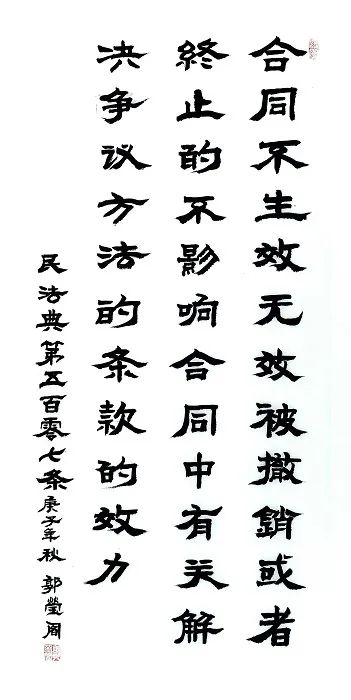 合同不生效无效被撤銷或者
終止的不影响合同中有关解
决争议方法的条款的效力
民法典第五百零七条庚子年秋郭瑩阁